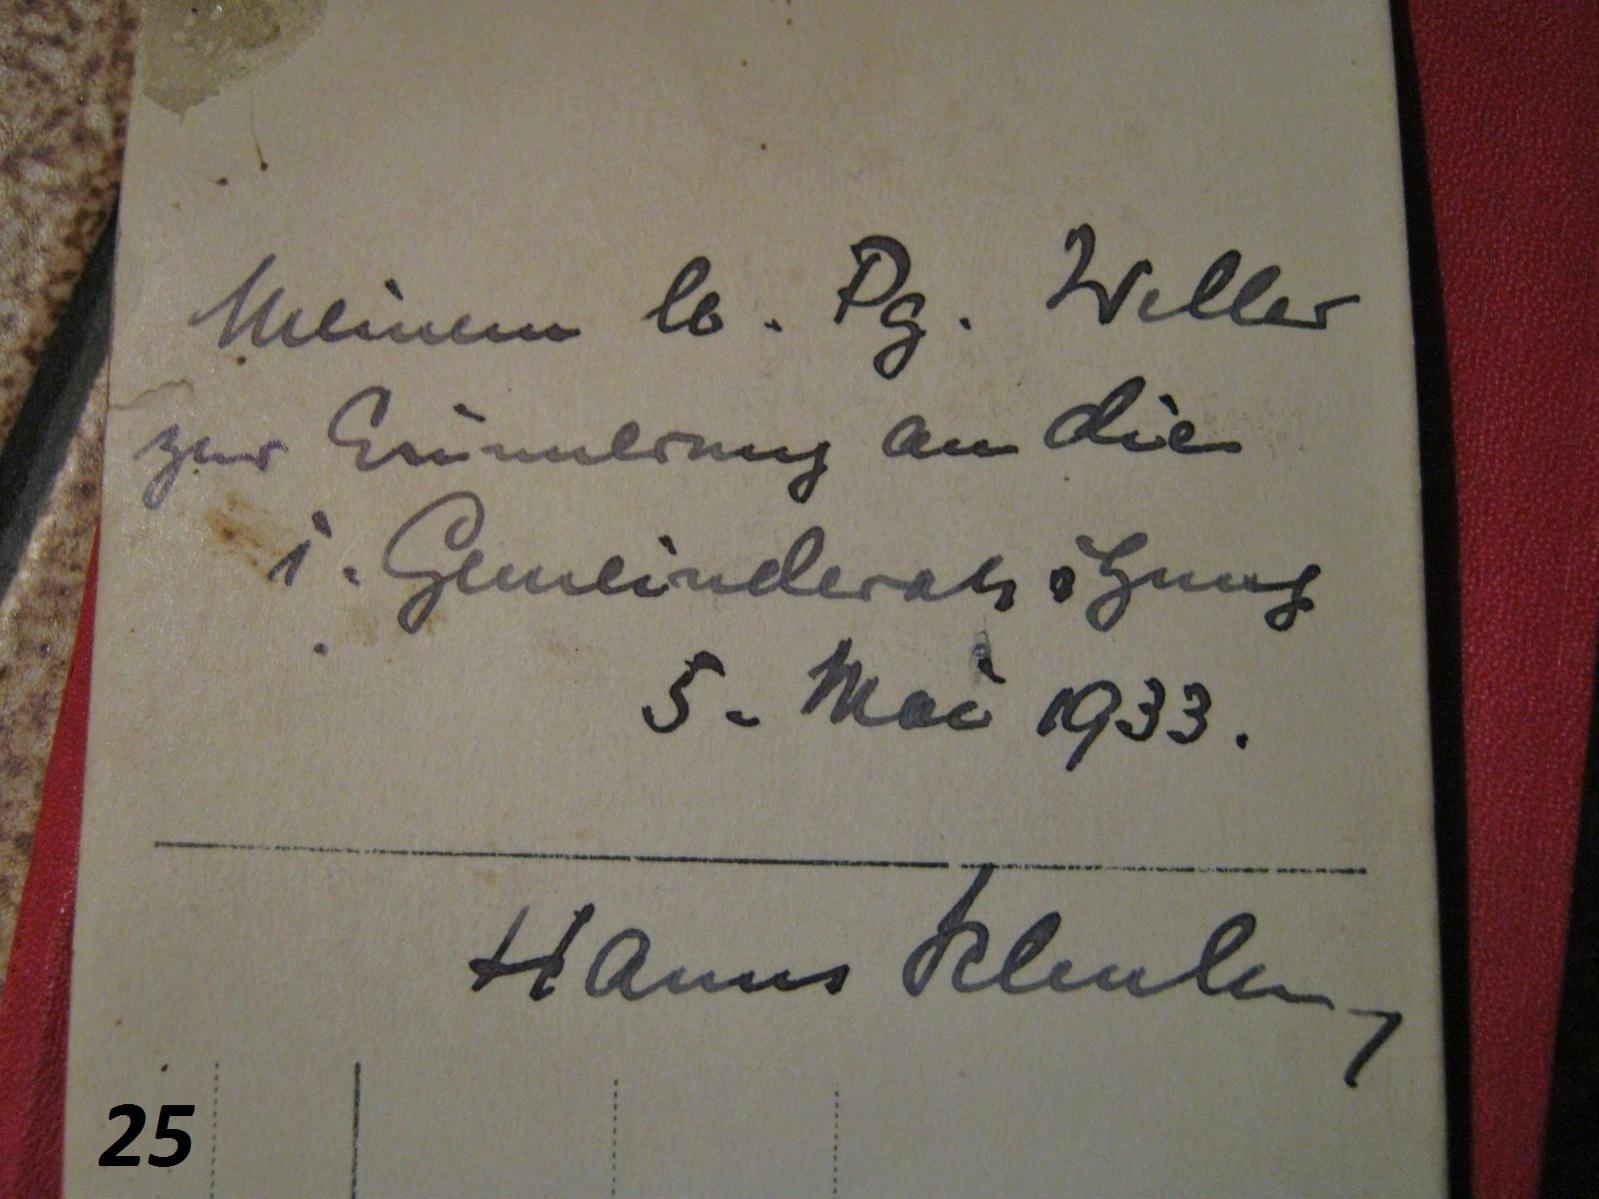 Meinem lb. Pg. Weller
zur Erinnerung an die
1. Gemeinderatssitzung
5. Mai 1933.
Hanns
25